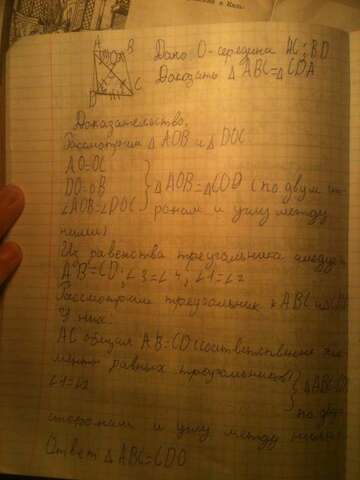 A B
O
D C
Дано O-середина AC; BD
Доказать Δ ABC=Δ CDA
Доказательство.
Рассмотрим Δ AOB и Δ DOC
AO=OC
DO=OB
∠AOB=∠DOC
Δ AOB=Δ COD (по двум сто-
ронам и углу между
ними)
Из равенства треугольника следует
AB=CD; ∠3=∠4, ∠1=∠2
Рассмотрим треугольник ABC и
У них:
AC общая AB=CD (соответственные эле-
мент равных треугольников)
∠1=∠2
Δ ABC=
по двум
сторонам и углу между ними
Ответ Δ ABC=CDO